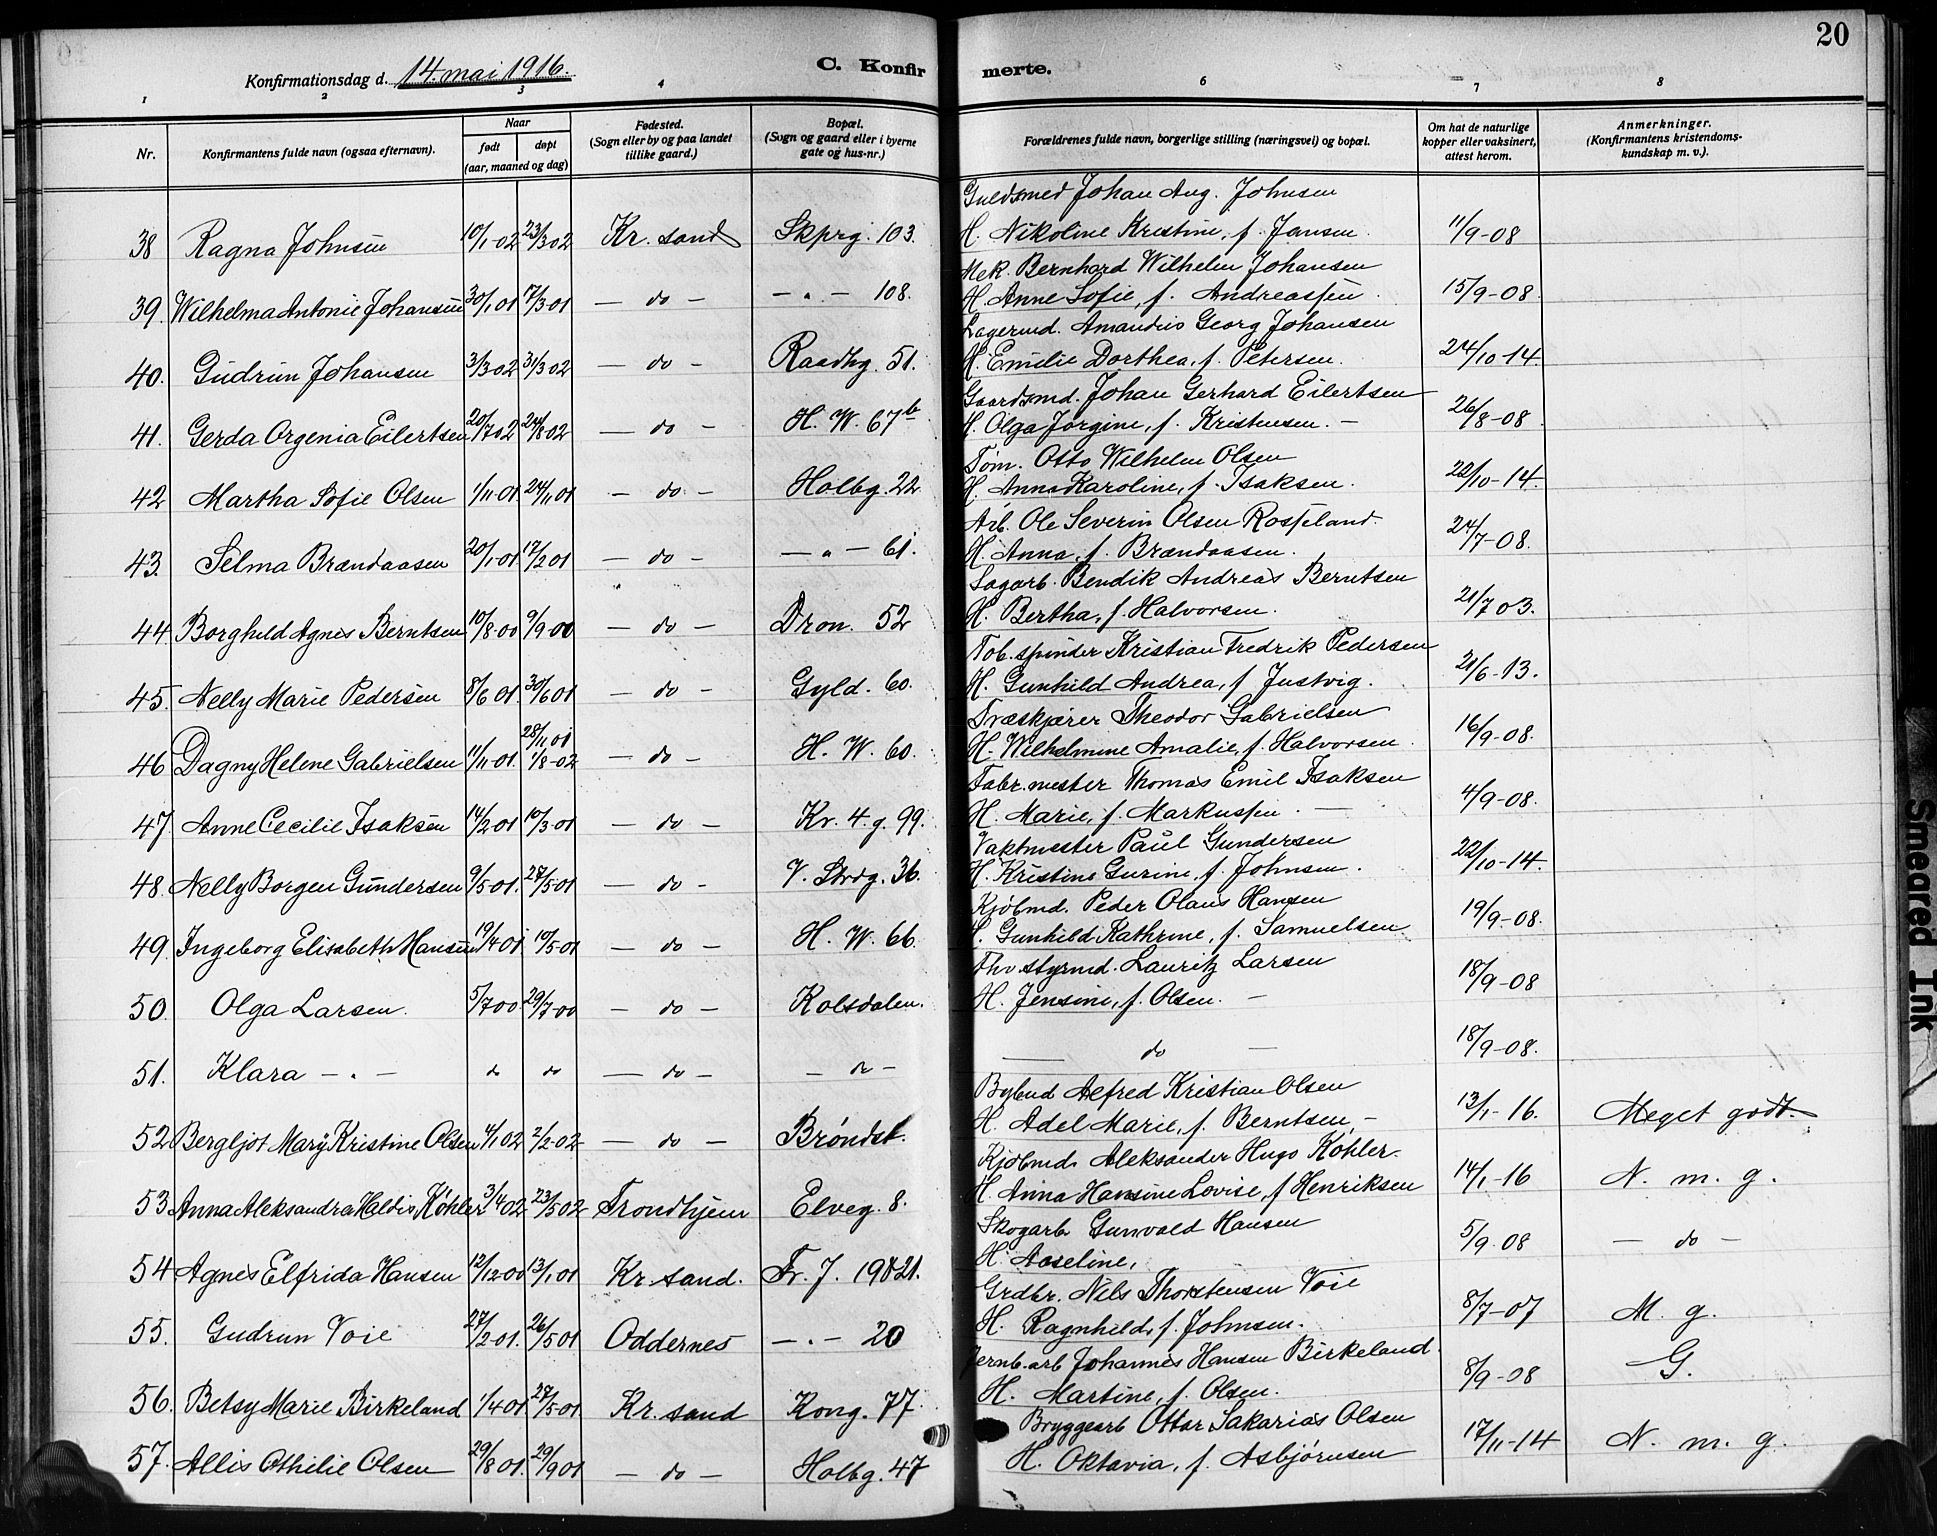 20
Konfirmationsdag d. 14. mai 1916.
C. Konfirmerte.
1 2 3 4 5 6 7 8
Nr.
Konfirmantens fulde navn (ogsaa efternavn).
Naar
født
døpt
(aar, maaned og dag)
Fødested.
(Sogn eller by og paa landet
tillike gaard.)
Bopæl.
(Sogn og gaard eller i byerne
gate og hus-nr.)
Forældrenes fulde navn, borgerlige stilling (næringsvei) og bopæl.
Om hat de naturlige
kopper eller vaksinert,
attest herom.
Anmerkninger.
(Konfirmantens kristendoms-
kundskap m. v.).
Guldsmed Johan Aug. Johnsen
38 Ragna Johnsen 10/1-02 23/3 02 Kr. sand Skprg. 103. H. Nikoline Kristine, f. Jansen. 11/9-08
Mek. Bernhard Wilhelm Johansen
39. Wilhelma Antonie Johansen 30/1 01 17/3 01 — do — — " — 108. H. Anne Sofie, f. Andreassen. 15/9-08.
Lagermd. Amandus Georg Johansen
40. Gudrun Johansen 3/3 02 31/3 02 — do — Raadhg. 51. H. Emilie Dorthea, f. Petersen. 24/10-14.
Gaardsmd. Johan Gerhard Eilertsen
41. Gerda Orgenia Eilertsen 20/7 02 24/8 02 — do — H. W. 67b H. Olga Jørgine, f. Kristensen. — 26/8-08
Tøm. Otto Wilhelm Olsen
42 Martha Sofie Olsen 1/11-01 24/11 01 — do — Holbg. 22 H. Anna Karoline, f. Isaksen. 22/10-14.
Arb. Ole Severin Olsen Rosseland.
43. Selma Brændaasen 20/1 01 17/2 01 — do — — " — 61. H. Anna, f. Brændaasen. 24/7-08.
Sagarb. Bendik Andreas Berntsen
44. Borghild Agnes Berntsen 10/8-00 9/9-00 — do — Dron. 52 H. Bertha, f. Halvorsen. 21/7 03.
Tob. spinder Kristian Fredrik Pedersen
45. Nelly Marie Pedersen 8/6 01 30/6 01 — do — Gyld. 60. H. Gunhild Andrea, f. Justvig. 21/6-13.
Træskjærer Theodor Gabrielsen
46 Dagny Helene Gabrielsen 11/11-01. 28/11 01 1/8-02 — do — H. W. 60. H. Wilhelmine Amalie, f. Halvorsen. 16/9-08.
Fabr. mester Thomas Emil Isaksen
47. Anne Cecilie Isaksen 14/2 01 10/3-01 — do — Kr. 4. g. 99. H. Marie, f. Markussen. — 4/9-08.
Vaktmester Paul Gundersen
48. Nelly Borgen Gundersen 9/5 01. 27/5-01 — do — V. Strdg. 36. H. Kristine Gurine, f. Johnsen. 22/10-14.
Kjøbmd. Peder Olaus Hansen
49. Ingeborg Elisabeth Hansen 19/4 01. 10/5-01 — do — H. W. 66. H. Gunhild Kathrine, f. Samuelsen. 19/9-08.
Fhv. styrmd. Lauritz Larsen
50. Olga Larsen. 5/7 00 29/7-00 — do — Kolsdalen. H. Jensine, f. Olsen. — 18/9-08
51. Klara — " — do do — do — — do — — do — 18/9-08.
Bybud Alfred Kristian Olsen
52 Bergljot Mary Kristine Olsen 4/1 02 2/2-02 — do — Brøndst. H. Adel Marie, f. Berntsen, — 13/1-16. Meget godt.
Kjøbmd. Aleksander Hugo Køhler.
53. Anna Aleksandra Haldis Køhler 3/4 02. 23/5 02 Trondhjem Elveg. 8. H. Anna Hansine Lovise, f. Henriksen 14/1-16 N. m. g.
Skogarb Gunvald Hansen
54 Agnes Elfrida Hansen 12/12-00 13/1 01 Kr. sand. Fr. J. 19821. H. Aaseline, 5/9-08 — do —
Grdbr. Nils Thorstensen Voie
55. Gudrun Voie 27/2-01. 26/5 01 Oddernes — " — 20 H. Ragnhild, f. Johnsen. 8/7-07 M. g.
Jernb. arb Johannes Hansen Birkeland.
56. Betsy Marie Birkeland 1/4 01 27/5-01 Kr. sand Kong. 77. H. Martine, f. Olsen. 8/9-08 G.
Bryggearb Ottar Sakarias Olsen
57. Allis Othilie Olsen 29/8 01. 29/9 01 — do — Holbg. 47 H. Oktavia, f. Asbjørnsen 17/11-14 N. m. g.
Smeared Ink